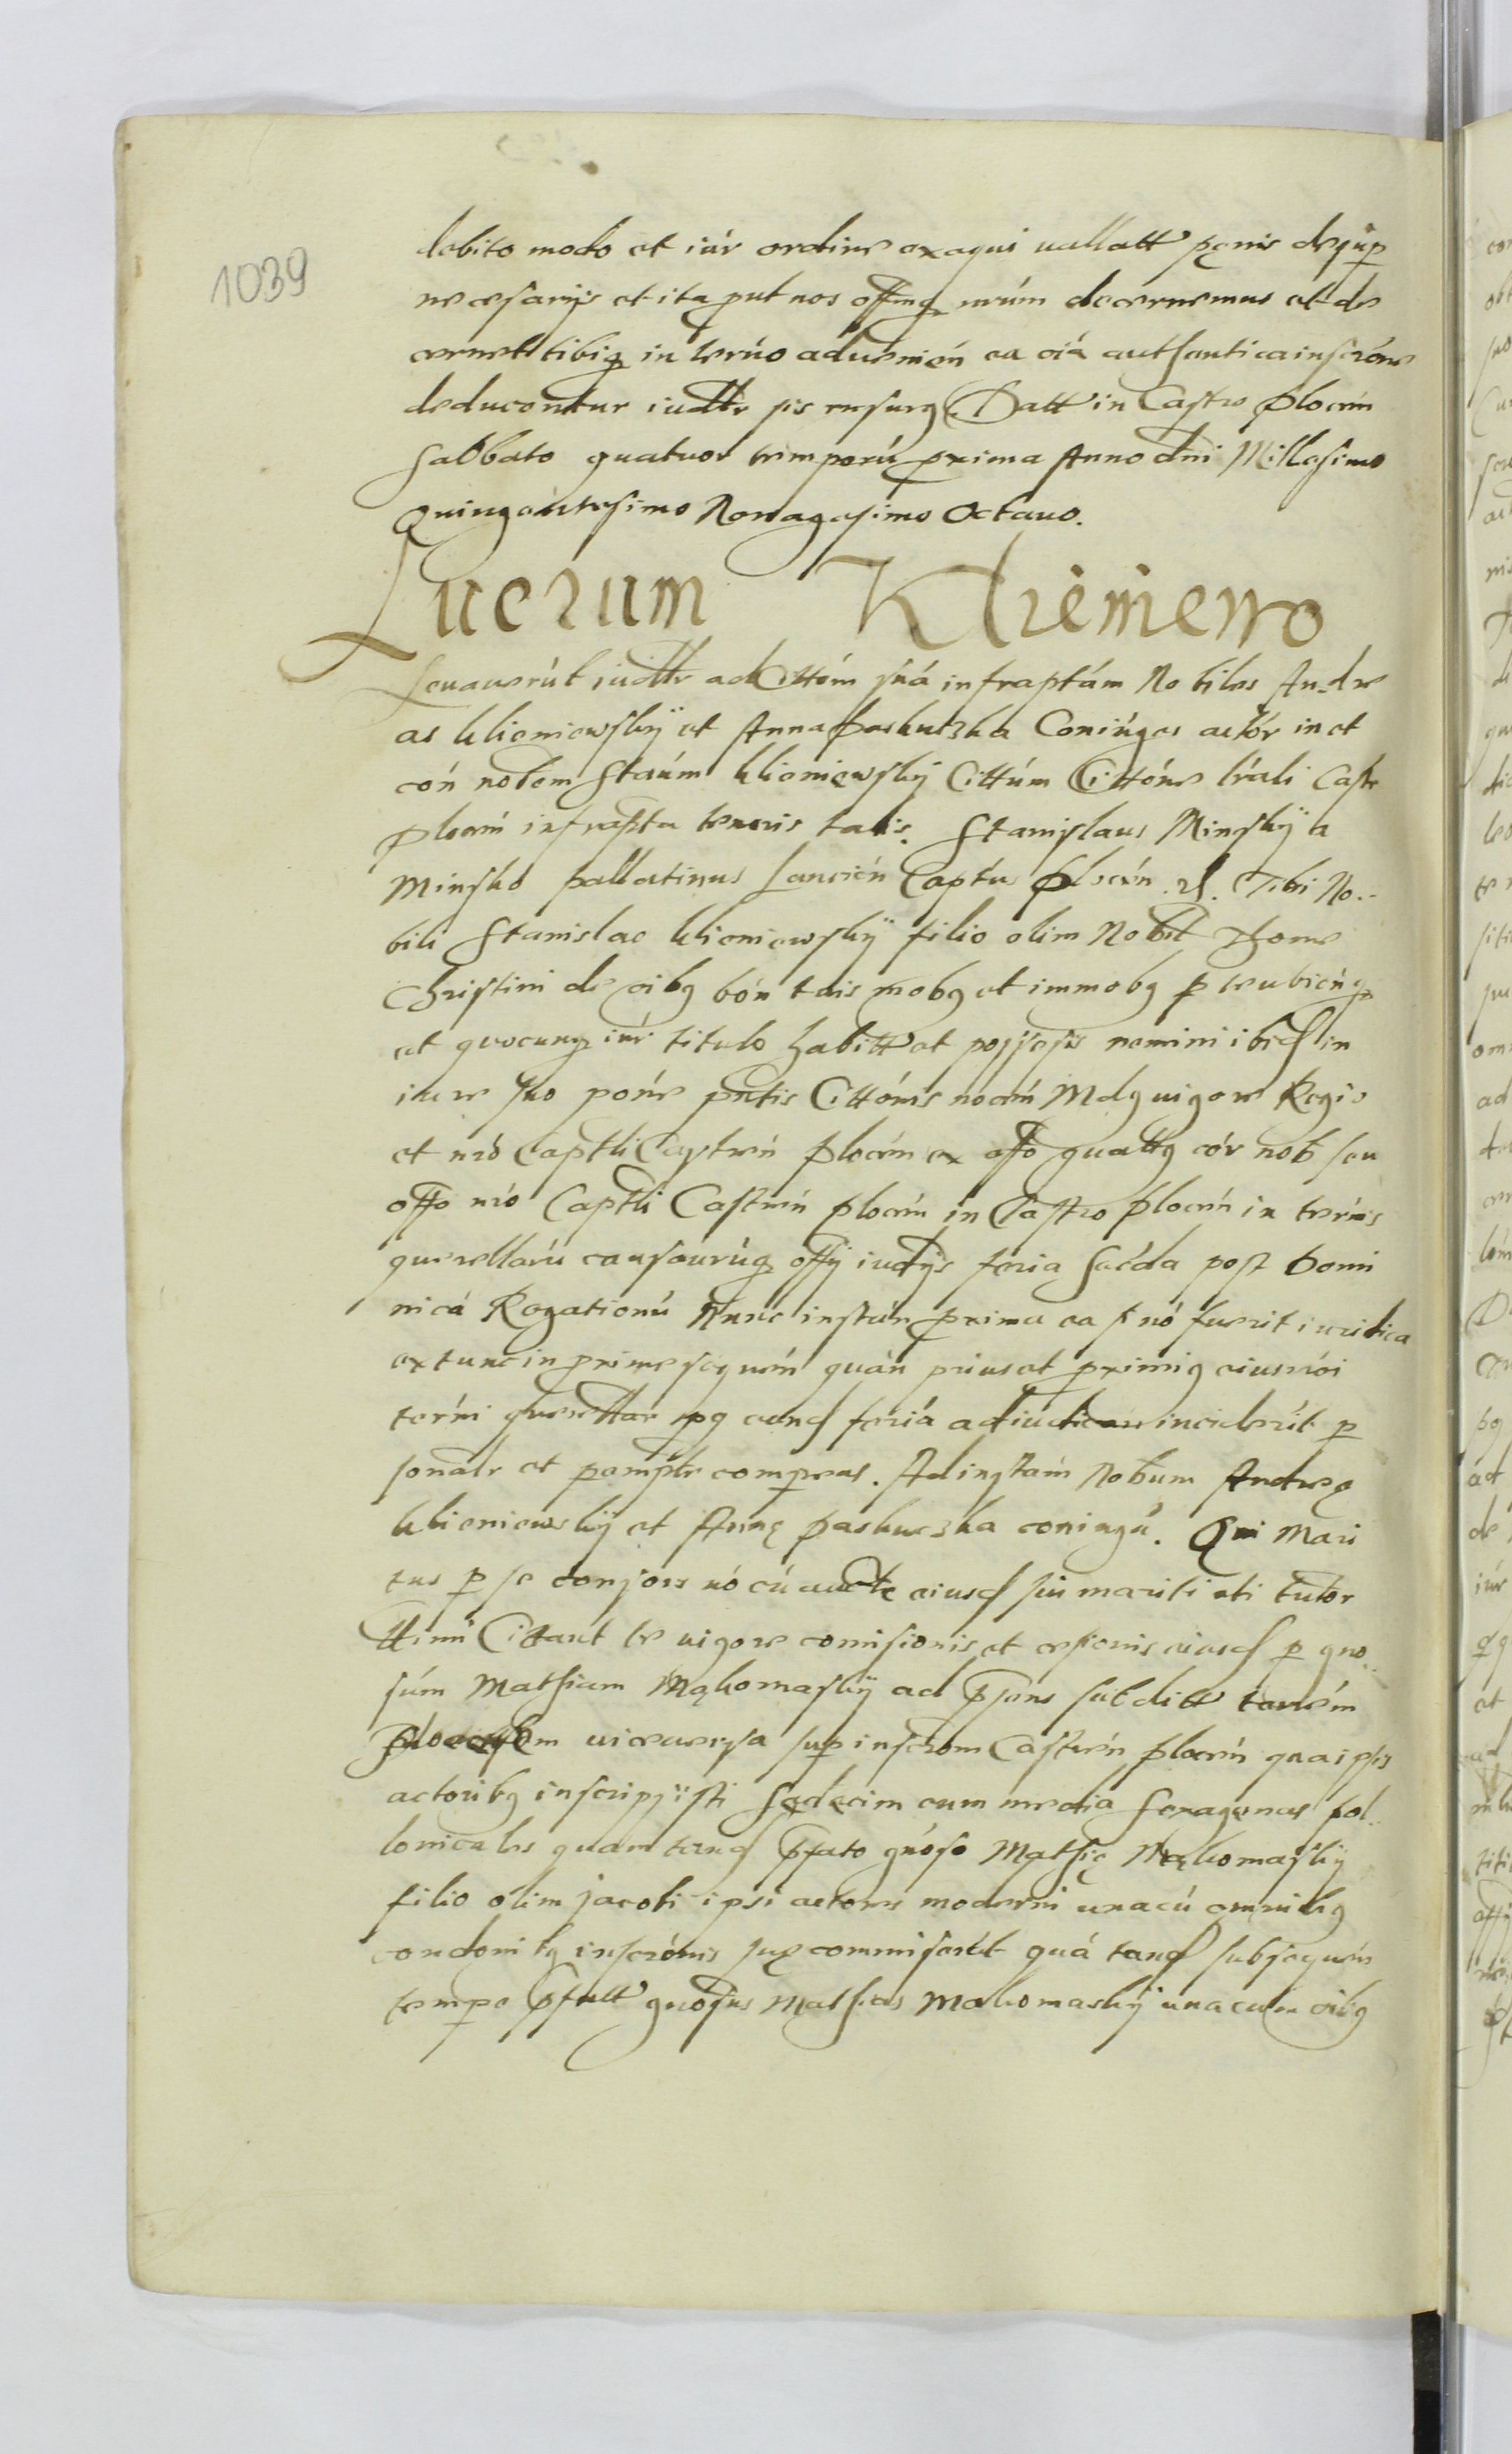 1039
debito modo et iúr ordine exequi uallatt pęnis desup
necesarijs et ita put nos offmq nrúm decernemus et de
cernet tibiq in terńo aduenień ea oiá authentica inscróne
deducentur iudltr sis rńsurq Datt in Castro plocén
Sabbato quatuor tempoŕu pxima Anno dni Millesimo
Quingentesimo Nonagesimo Octauo.
Lucrum Klieniewo
Leuauerút iudltr ad Cittóm śuá infraptám Nobiles Andre
as klieniewskÿ et Anna paskuczka Coniúges actór in et
cón nobem Staúm klieniewskÿ Cittúm Cittóne lráli Castr
plocén infrapta tenoris talis. Stanislaus Minskÿ a
Minsko pallatinus Lancicén Captus plocén. Tibi No-
bili Stanislao klieniewskÿ filio olim Nobil Thome
Christini de oibq bón tuis mobq et immobq p te ubicúq
et quocunq iúr titulo habitt et possessis nemini ibid in
iure suo pońe pntis Cittónis nocén Mdq uigore Regio
et nró Captli Castreń plocén ex offo quattq cór nob seu
offo nro Captli Castreń plocén in Castro plocén in terńis
querellarú causarúq offij iudijs feria Secda post Domi
nicá Rogationú Nunc instań pxima ea si nó fuerit iuridica
extunc in pxime sequén quán prius et pximiq eiusmói
terńi querellar ipq eand feriá adiudicare inciderít p
sonalr et pemptr compreas. Ad instań Nobum Andreę
klieniewskÿ et Annę paskuczka coniugú. Qui Mari
tus p se conjors uó cú aucte eiusd sui mariti uti tutor
lttimi Cittant te uigore comisionis et cesionis eiusd p gno-
súm Mathiam Mąkomaskÿ ad psens subditt terrém
plocensem uiceuersa sup inscrom Castreń plocén qua ipsis
actoribq inscripsisti Sedecim cum media sexagenas pol-
lonicales quam tand pfato gnóso Mathię Mąkomaskÿ
filio olim jacobi ipsi actores moderni unacú omnibq
condonibq inscrónis suę commiserút quá tand subsequén
tempe pfatt gnosus Mathias Makomaskÿ unacum oibq